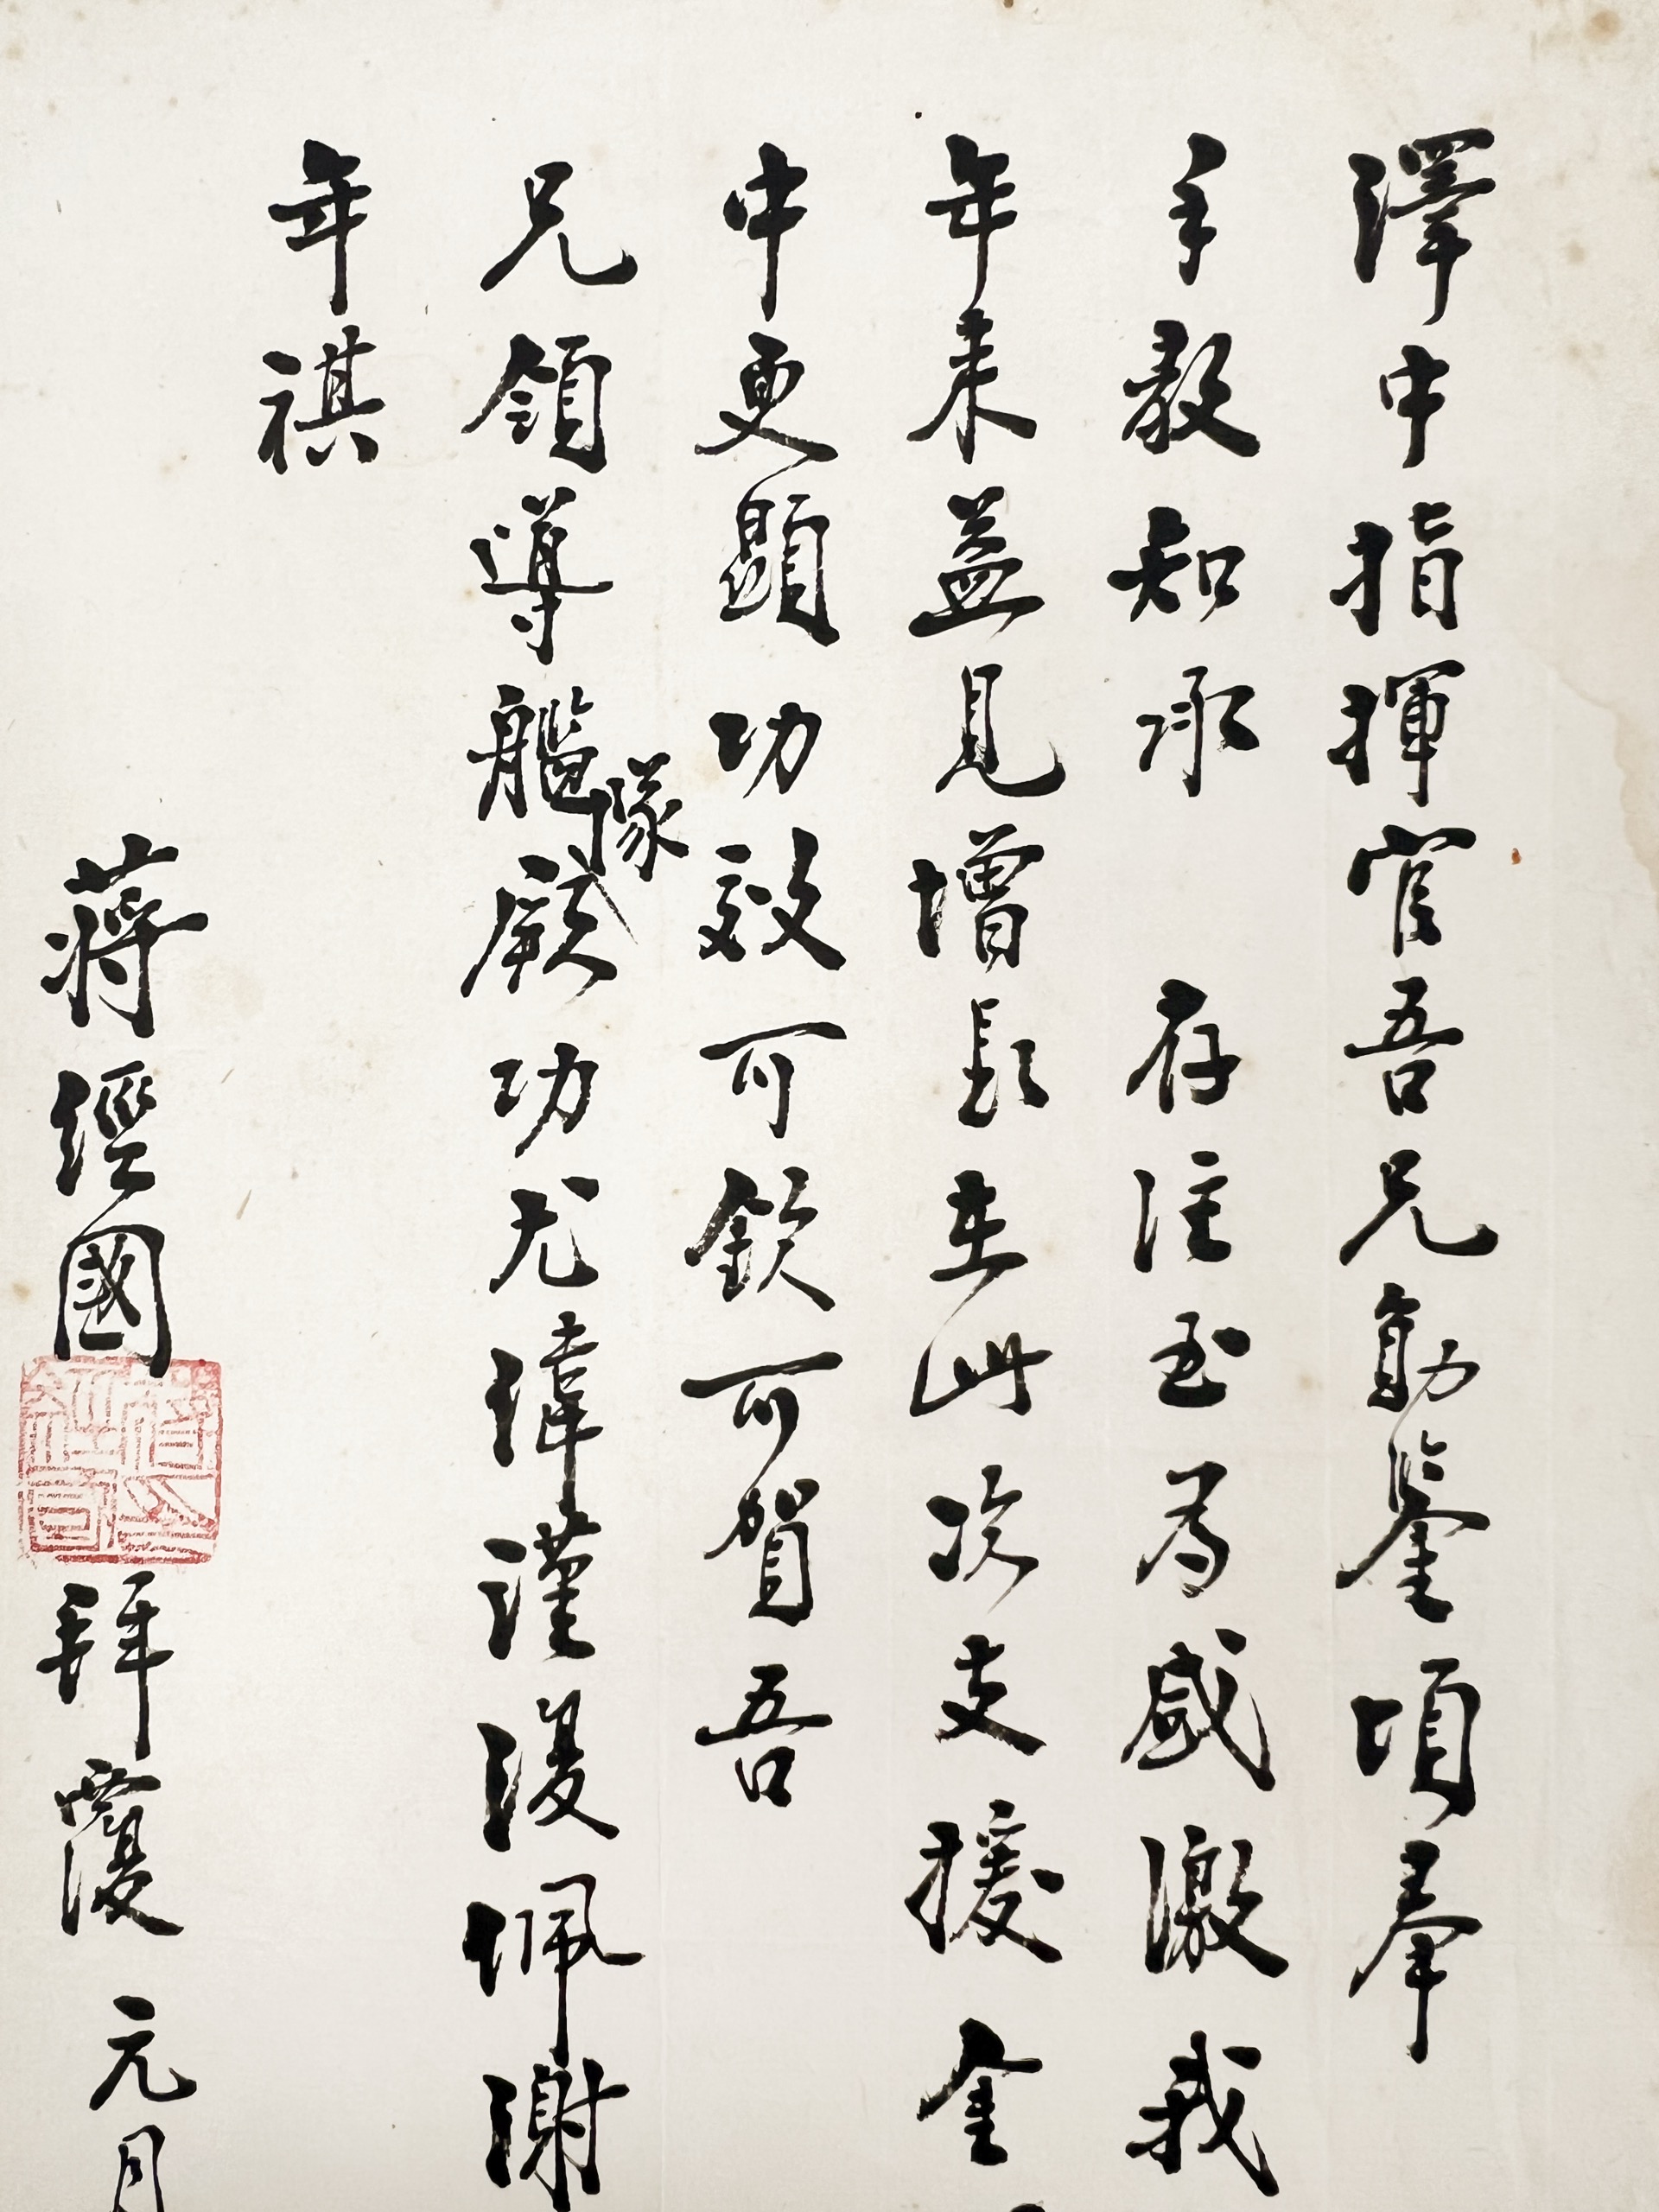 澤中指揮官吾兄勛鑒頃奉
手教知承 存注至為感激我
年來益見增長在此次支援金
中更顯功效可欽可賀吾
兄領導艦隊厥功尤偉謹復佩謝
年祺
蔣經國拜覆 元月